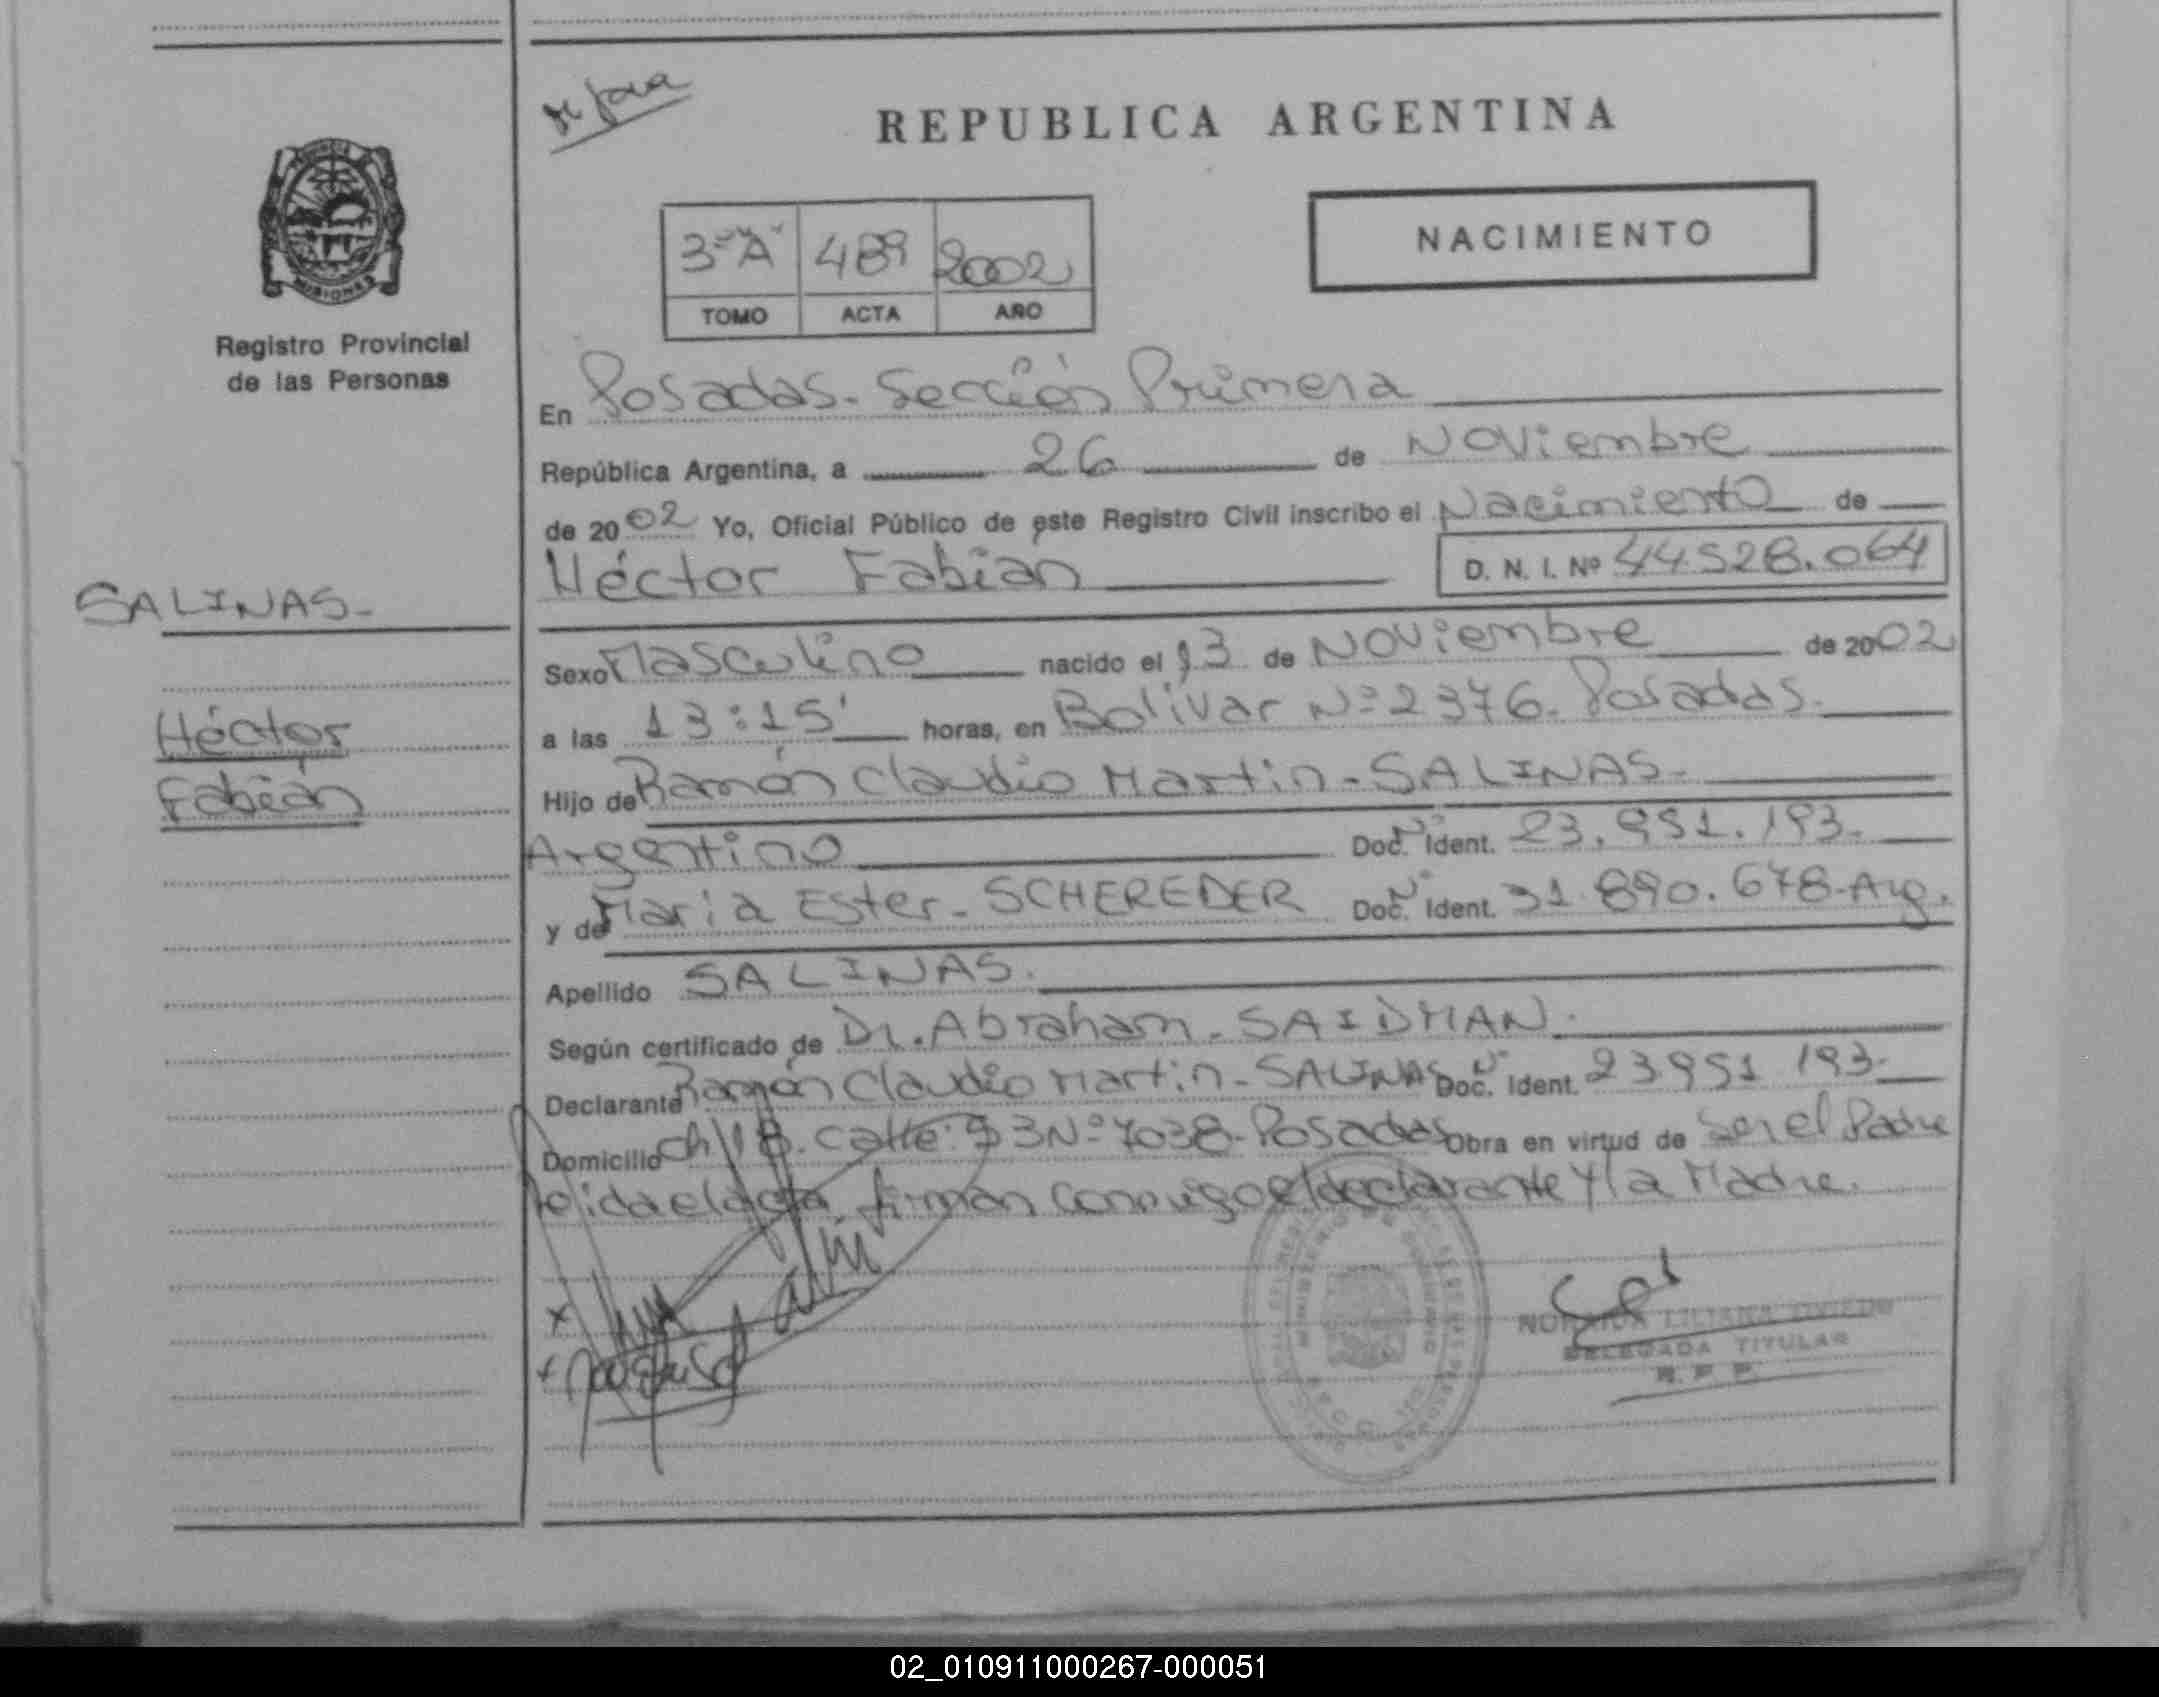 REPUBLICA ARGENTINA
NACIMIENTO
3º "A" 489 2002
TOMO ACTA AÑO
MISIONES
Registro Provincial
de las Personas
En Posadas. Sección Primera
República Argentina, a 26 de Noviembre
de 2002 Yo, Oficial Público de este Registro Civil inscribo el Nacimiento de
Héctor Fabián D. N. I. Nº 44.528.064
SALINAS-
Héctor
Fabián
Sexo Masculino nacido el 13 de Noviembre de 2002
a las 13:15' horas, en Bolivar Nº 2376. Posadas.
Hijo de Ramón Claudio Martin - SALINAS.
Argentino Doc. Nº Ident. 23.951.193.
y de Maria Ester - SCHEREDER Doc. Nº Ident. 31.890.678-Arg.
Apellido SALINAS.
Según certificado de Dr. Abraham - SAIDMAN.
Declarante Ramón Claudio Martin - SALINAS Doc. Nº Ident. 23951193.
Domicilio Ch Calle: Nº 7038- Posadas Obra en virtud de Ser el Padre
el acta firman conmigo el declarante y la Madre.
LILIANA OVIEDO
DELEGADA TITULAR
R. P. P.
02_010911000267-000051